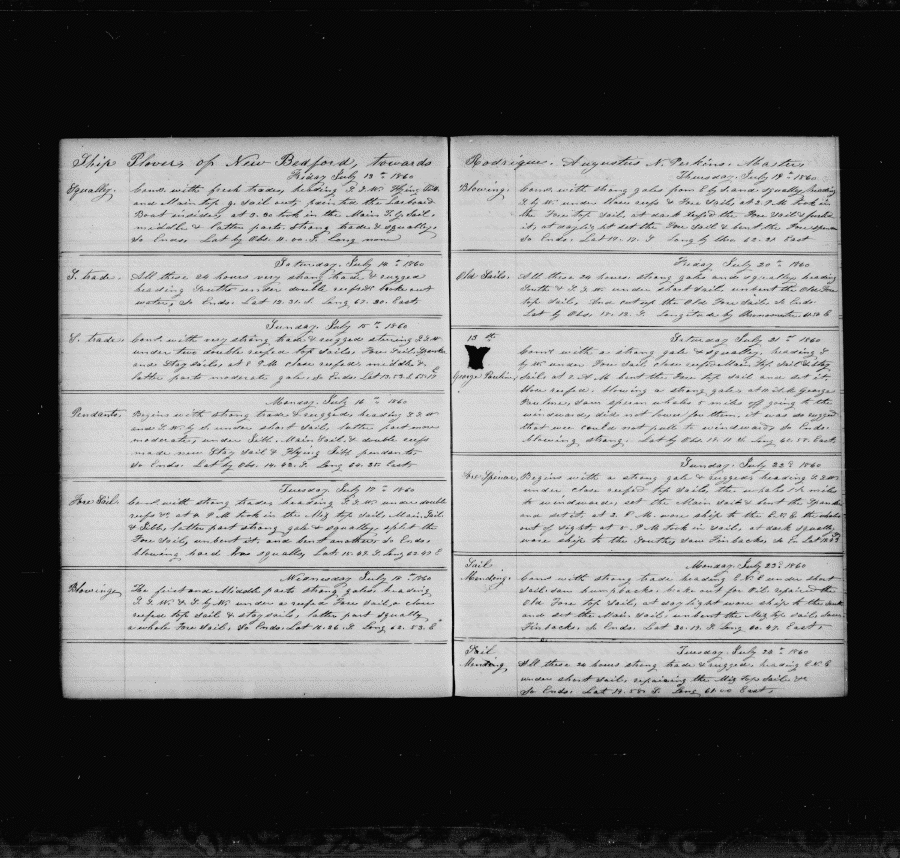 Ship Plover, of New Bedford, towards
Friday July 13th 1860
Squally. Comd. with fresh trades, heading S.S.W. Flying Jib
and Main top g. sail out, painted the Larboard
Boat insides, at 3.30 took in the Main T.G. Sail,
middle & latter parts strong trade & squally.
So Ends. Lat by Obs. 11.00 S. Long none
Saturday July 14th 1860
S. trade. All these 24 hours very strong trade & rugged
heading South under double reefs & broke out
water, So Ends. Lat 12.31 S. Long 62.20. East.
Sunday, July 15th 1860
S. trade. Comd. with very strong trade & rugged steering S.S.W
under two double reefed top sails, Fore Sail, Spanker
and Stay sails, at 5 P.M close reefed, middle &
latter parts moderate gale, So Ends.
Monday, July 16th 1860
Pendants. Begins with strong trade & rugged, heading S.S.W
and S.W. by S. under short sail, latter part more
moderate, under Jibb, Main Sail & double reefs
made new Stay Sail & Flying Jibb pendants,
So Ends. Lat by Obs. 14.42. S. Long 62.25 East
Tuesday, July 17th 1860
Fore Sail. Comd. with strong trade, heading S.S.W. under double
reefs & at 4 P.M took in the Miz top sail, Main Sail
& Jibb, latter part strong gale & squally, split the
Fore Sail, unbent it, and bent another So Ends.
blowing hard squalls, Lat 15.49. S. Long 62.47 E
Wednesday July 18th 1860
Blowing. The first and Middle parts strong gales, heading
S.S.W. & S. by W. under a reefed Fore Sail, close
reefed top sail & staysails, latter part squally
a whole Fore Sail, So Ends. Lat 16.26. S. Long 62.53. E
Rodrique. Augustus N. Perkins. Master
Thursday, July 19th 1860
Blowing. Comd. with strong gales from E by S. and squally, heading
S. by W. under close reefs & Fore Sail, at 3 P.M took in
the Fore top sail, at dark reefd the Fore Sail & furled
it, at daylight set the Fore Sail & bent the Fore spencer
So Ends. Lat 17.17. S. Long by Chro 62.21 East
Friday July 20th 1860
Old Sails. All these 24 hours strong gales and squally, heading
South & S.S.W. under short sail, unbent the Old Fore
top sail, And cut up the Old Fore sail. So Ends.
Lat by Obs. 18.13. S. Longitude by Chronometer
Saturday July 21st 1860
13 th
George Pauline, Comd. with a strong gale & squally, heading S
by W. under Fore Sail, close reef Main top sail & Stay
Sails at 8 A.M bent the Fore top sail and set it
close reefed. blowing a strong gale, at 9 o'clk George
Pauline, saw sperm whales 5 miles off going to the
windward, did not lower for them, it was so rugged
that we could not pull to windward, So Ends
blowing, strong. Lat by Obs 19.11 S. Long 60.58. East
Sunday, July 22d 1860
Fore Spencer, Begins with a strong gale & rugged, heading S.S.W
under close reefed top sails, the whales 5 miles
to windward, set the Main Sail & bent the Spank
and set it. at 2 P.M. wore ship to the E.N.E. the whales
out of sight, at 5. P.M Took in sail, at dark squally,
wore ship to the South, saw Finbacks, So En
Monday, July 23d 1860
Sail
Mending. Comd. with strong trade heading E.N.E under short
sail, saw humpbacks, broke out for Oil, repaired the
Old Fore top sail, at day light wore ship to the South
and set the Main Sail, unbent the Miz top sail, saw
Finbacks. So Ends. Lat 20.17. S. Long 60.47. East.
Tuesday, July 24th 1860
Sail
Mending, All these 24 hours strong trade & rugged, heading E.N.E
under short sail, repairing the Miz top sail. &c
So Ends. Lat 19.58. S. Long 61.00 East.